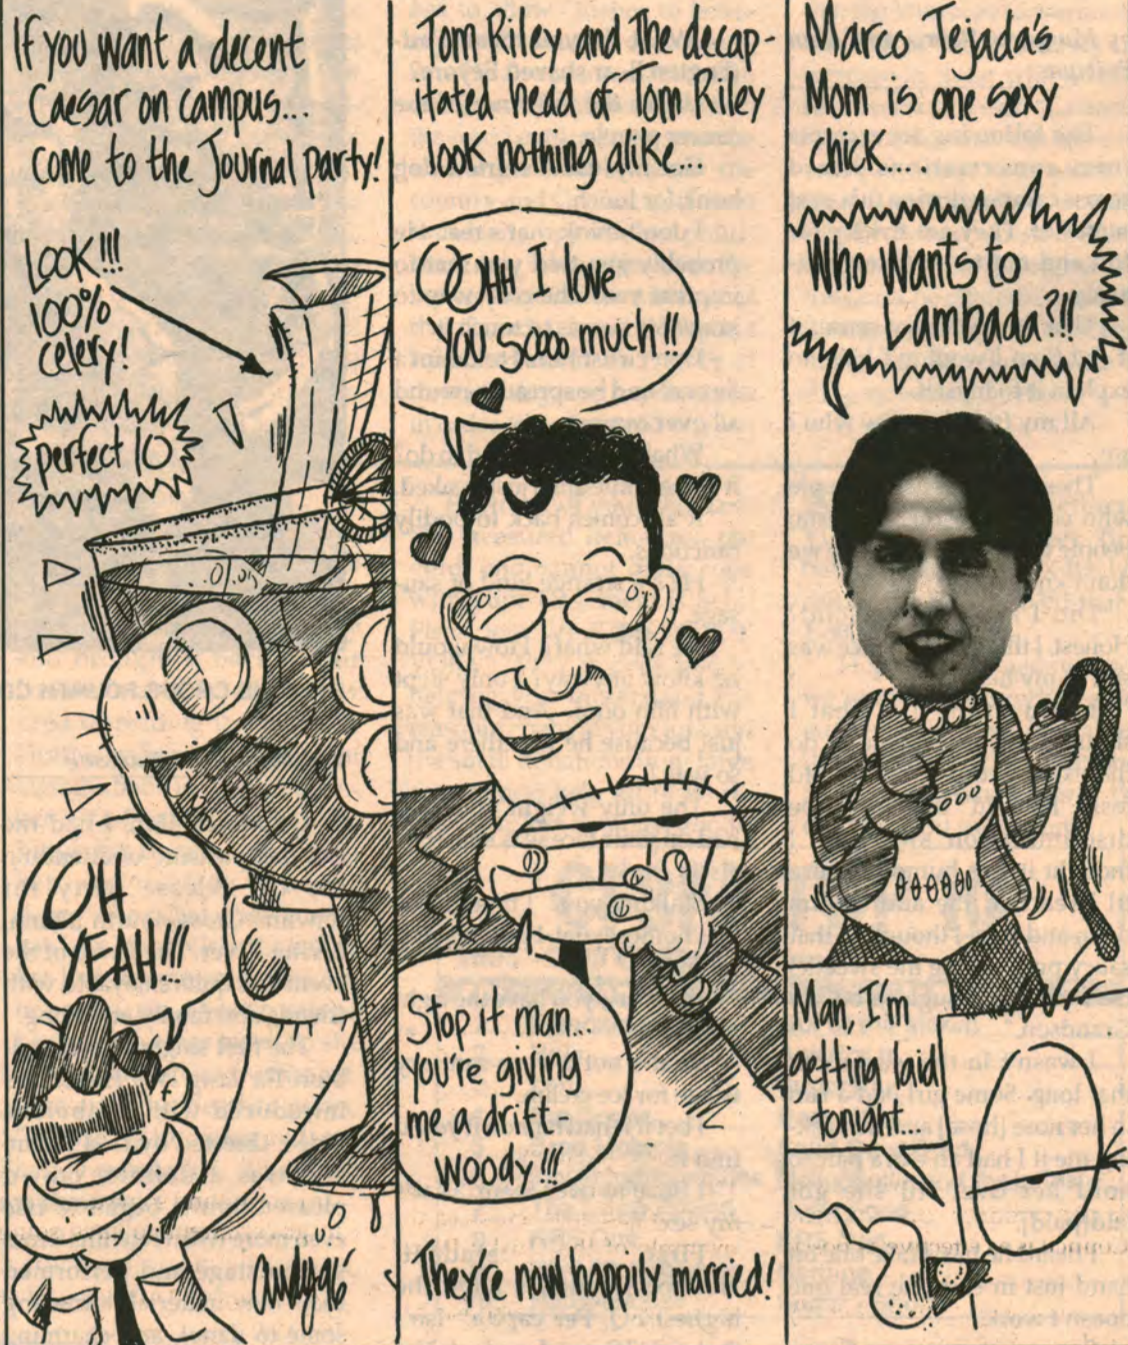 If you want a decent
Caesar on campus...
come to the Journal party!
LOOK!!!
100%
celery!
perfect 10
OH
YEAH!!!
Tom Riley and the decap-
itated head of Tom Riley
look nothing alike...
Ohh I love
you soooo much!!
Stop it man...
you're giving
me a drift-
woody!!!
They're now happily married!
Marco Tejada's
Mom is one sexy
chick...
Who Wants to
Lambada?!!
Man, I'm
getting laid
tonight...